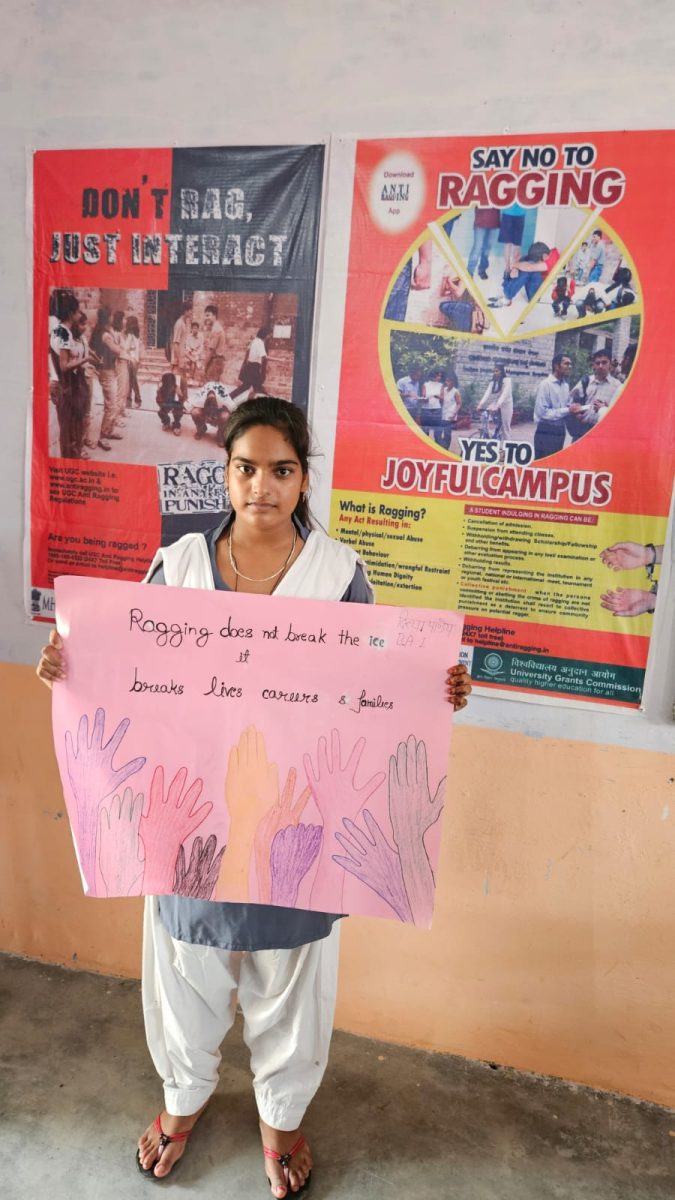 DON'T RAG,
JUST INTERACT
Visit UGC website i.e.
www.ugc.ac.in &
www.antiragging.in to
see UGC Anti Ragging
Regulations
PUNISH
Are you being ragged ?
Download
ANTI
RAGGING
App
SAY NO TO
RAGGING
YES TO
JOYFULCAMPUS
What is Ragging?
Any Act Resulting in:
• Mental/physical/sexual Abuse
Verbal Abuse
Behaviour
Human Dignity
A STUDENT INDULGING IN RAGGING CAN BE:
• Cancellation of admission.
• Suspension from attending classes.
• Withholding/withdrawing Scholarship/Fellowship
and other benefits.
• Debarring from appearing in any test/ examination or
other evaluation process.
• Withholding results.
• Debarring from representing the institution in any
regional, national or international meet, tournament
or youth festival etc.
• Collective punishment when the persons
committing or abetting the crime of ragging are not
identified the institution shall resort to collective
punishment as a deterrent to ensure community
pressure on potential ragger.
Ragging Helpline
toll free)
to helpline@antiragging.in
विश्वविद्यालय अनुदान आयोग
University Grants Commission
quality higher education for all
Ragging does not break the ice
it
breaks lives careers & families